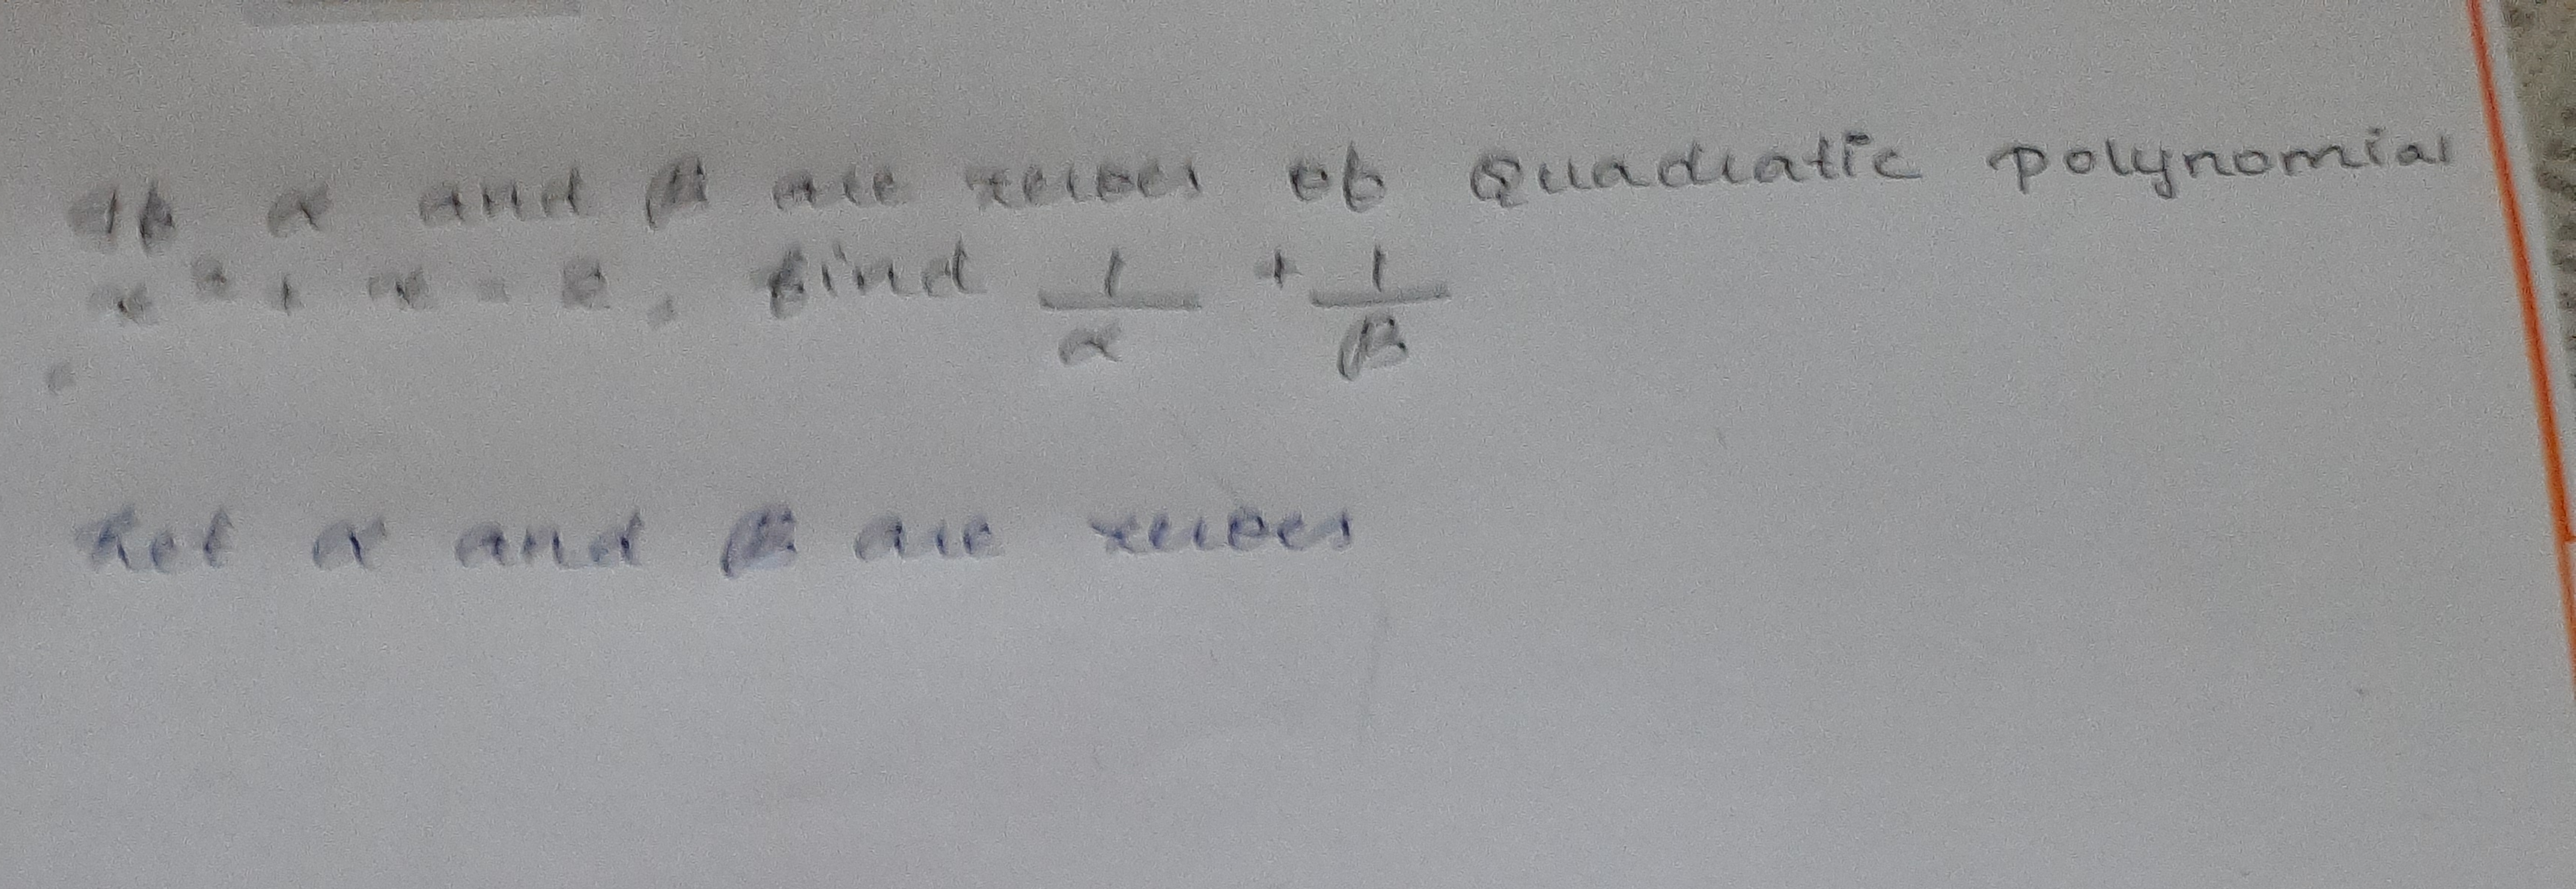 If α and β are zeroes of Quadratic polynomial
x² + x - 2, find 1/α + 1/β
Let α and β are zeroes